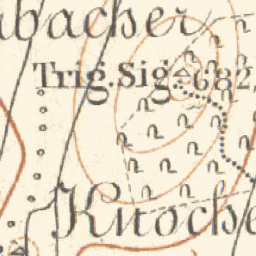 bacher
Trig. Sig. 682,
Knoche